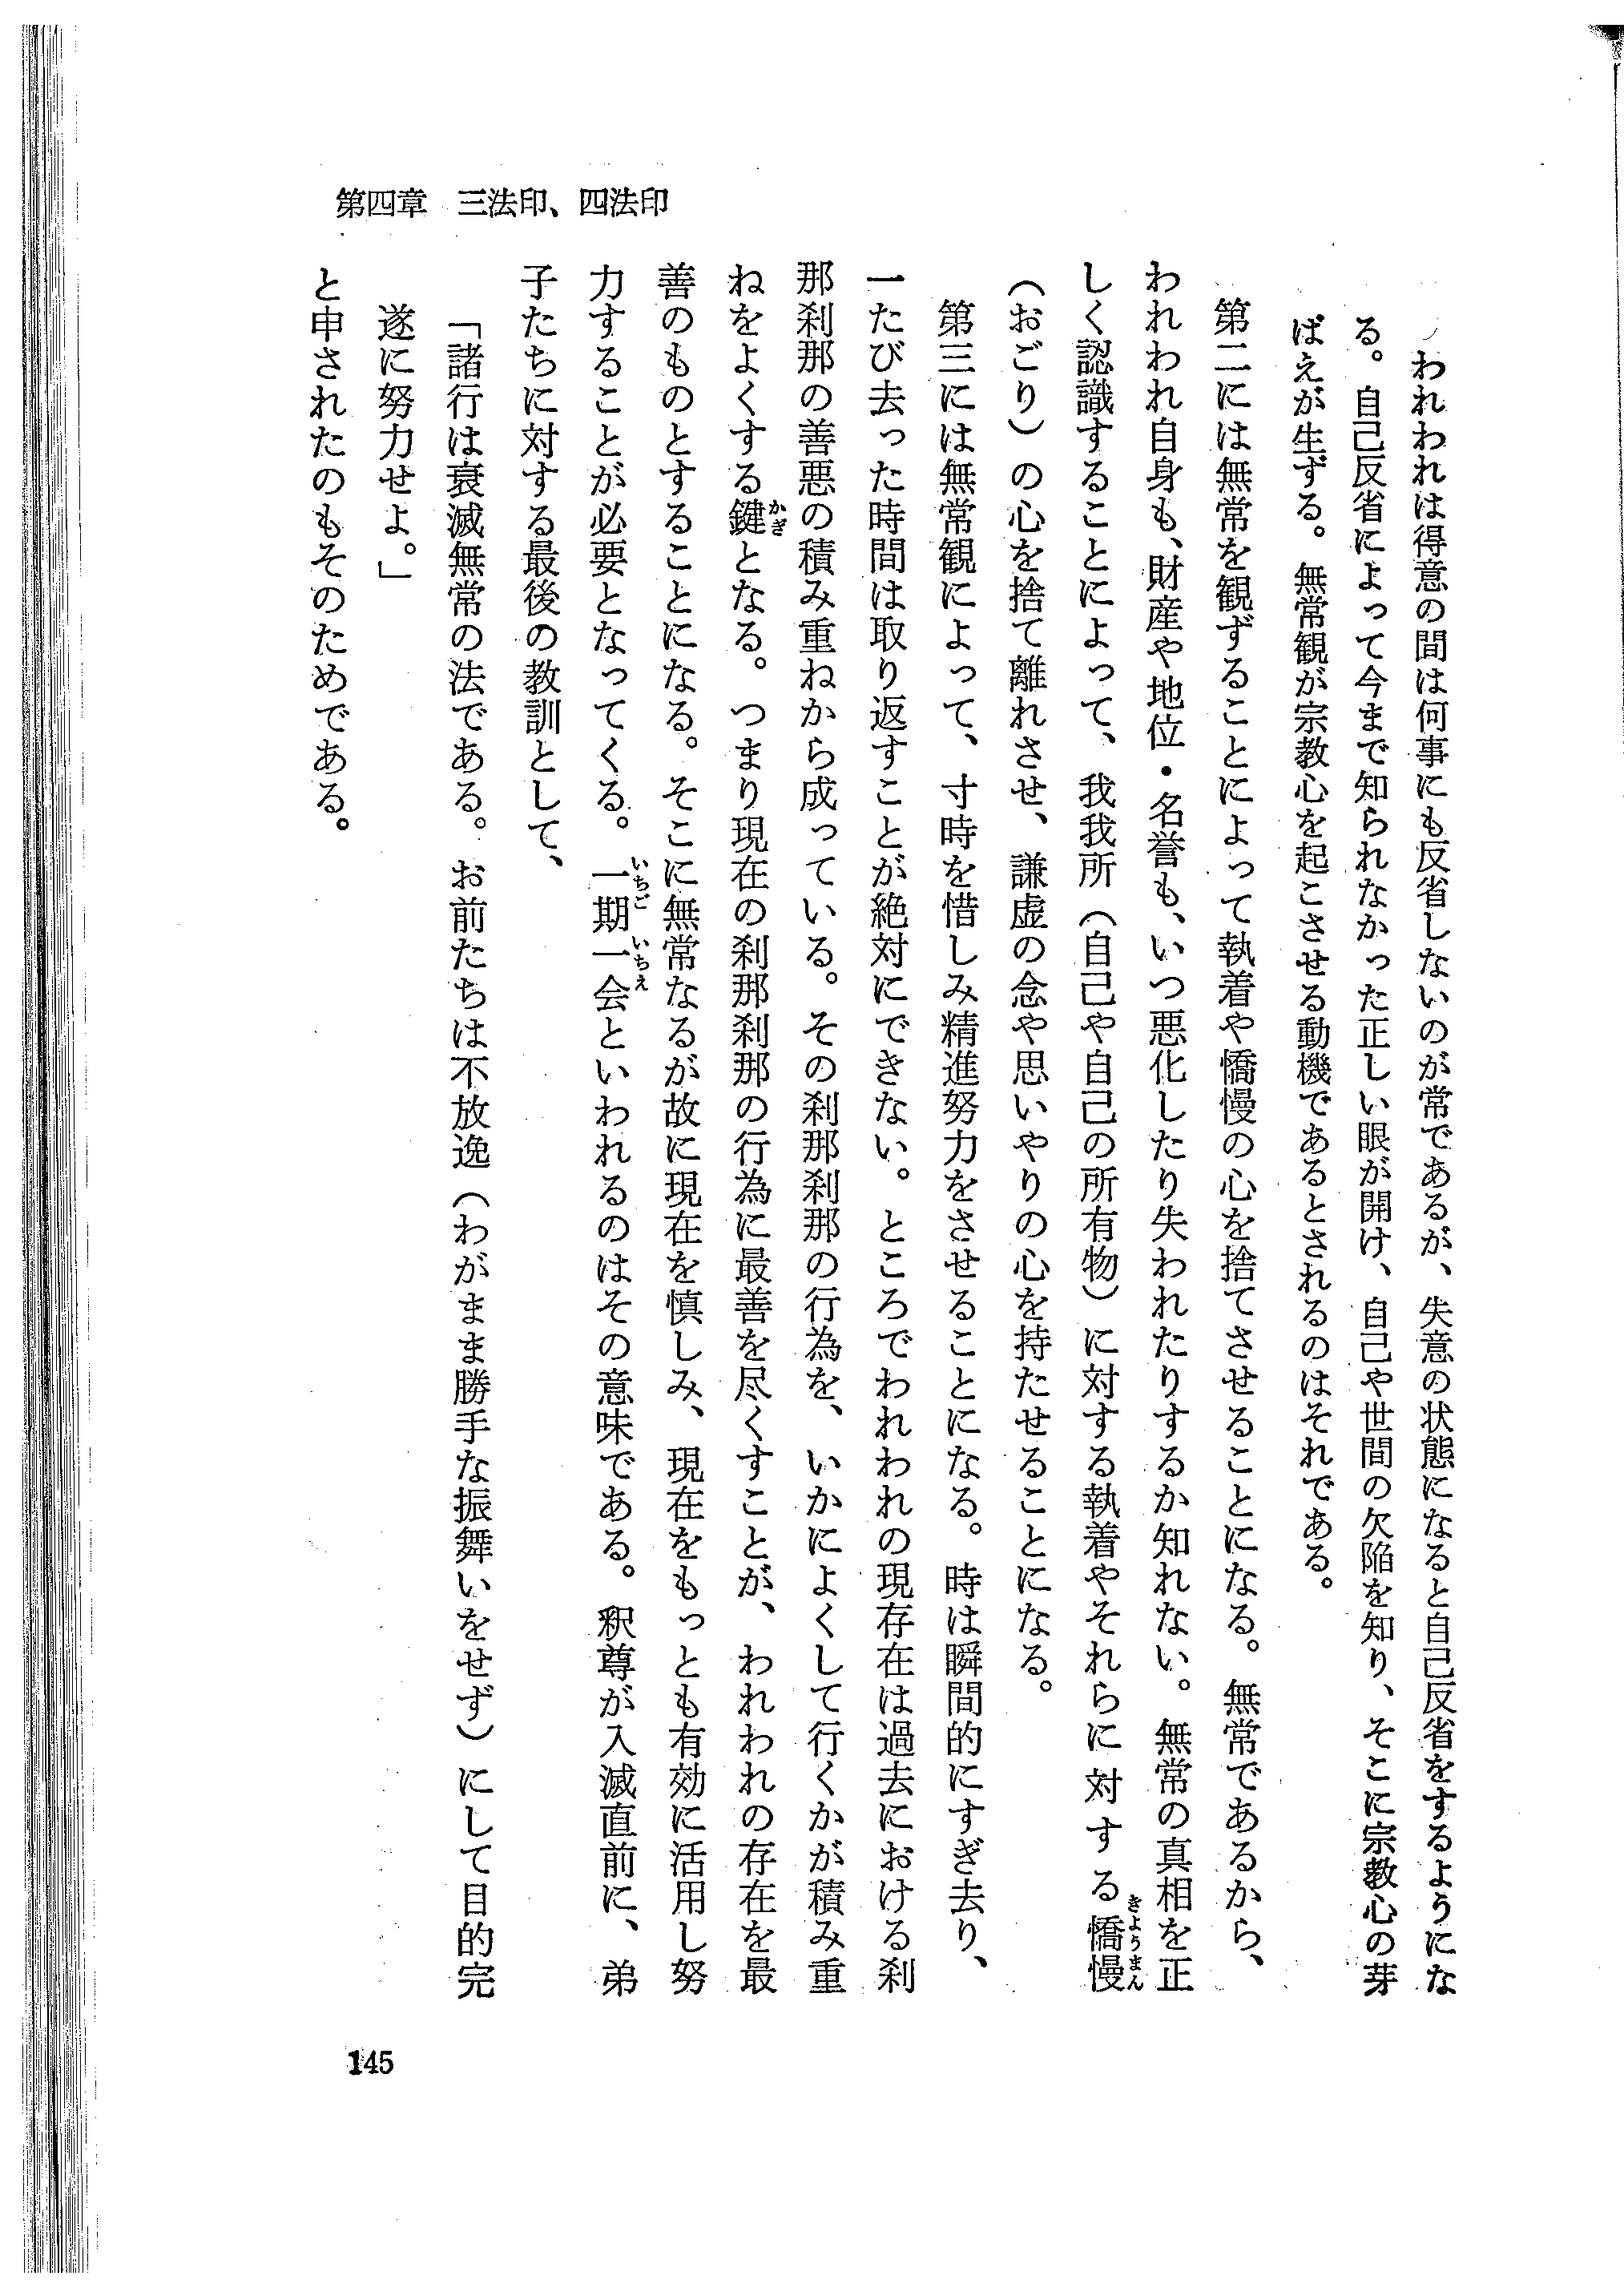 第四章　三法印、四法印
われわれは得意の間は何事にも反省しないのが常であるが、失意の状態になると自己反省をするようにな
る。自己反省によって今まで知られなかった正しい眼が開け、自己や世間の欠陥を知り、そこに宗教心の芽
ばえが生ずる。無常観が宗教心を起こさせる動機であるとされるのはそれである。
第二には無常を観ずることによって執着や憍慢の心を捨てさせることになる。無常であるから、
われわれ自身も、財産や地位・名誉も、いつ悪化したり失われたりするか知れない。無常の真相を正
しく認識することによって、我我所（自己や自己の所有物）に対する執着やそれらに対する憍慢
（おごり）の心を捨て離れさせ、謙虚の念や思いやりの心を持たせることになる。
第三には無常観によって、寸時を惜しみ精進努力をさせることになる。時は瞬間的にすぎ去り、
一たび去った時間は取り返すことが絶対にできない。ところでわれわれの現存在は過去における刹
那刹那の善悪の積み重ねから成っている。その刹那刹那の行為を、いかによくして行くかが積み重
ねをよくする鍵となる。つまり現在の刹那刹那の行為に最善を尽くすことが、われわれの存在を最
善のものとすることになる。そこに無常なるが故に現在を慎しみ、現在をもっとも有効に活用し努
力することが必要となってくる。一期一会といわれるのはその意味である。釈尊が入滅直前に、弟
子たちに対する最後の教訓として、
「諸行は衰滅無常の法である。お前たちは不放逸（わがまま勝手な振舞いをせず）にして目的完
遂に努力せよ。」
と申されたのもそのためである。
145